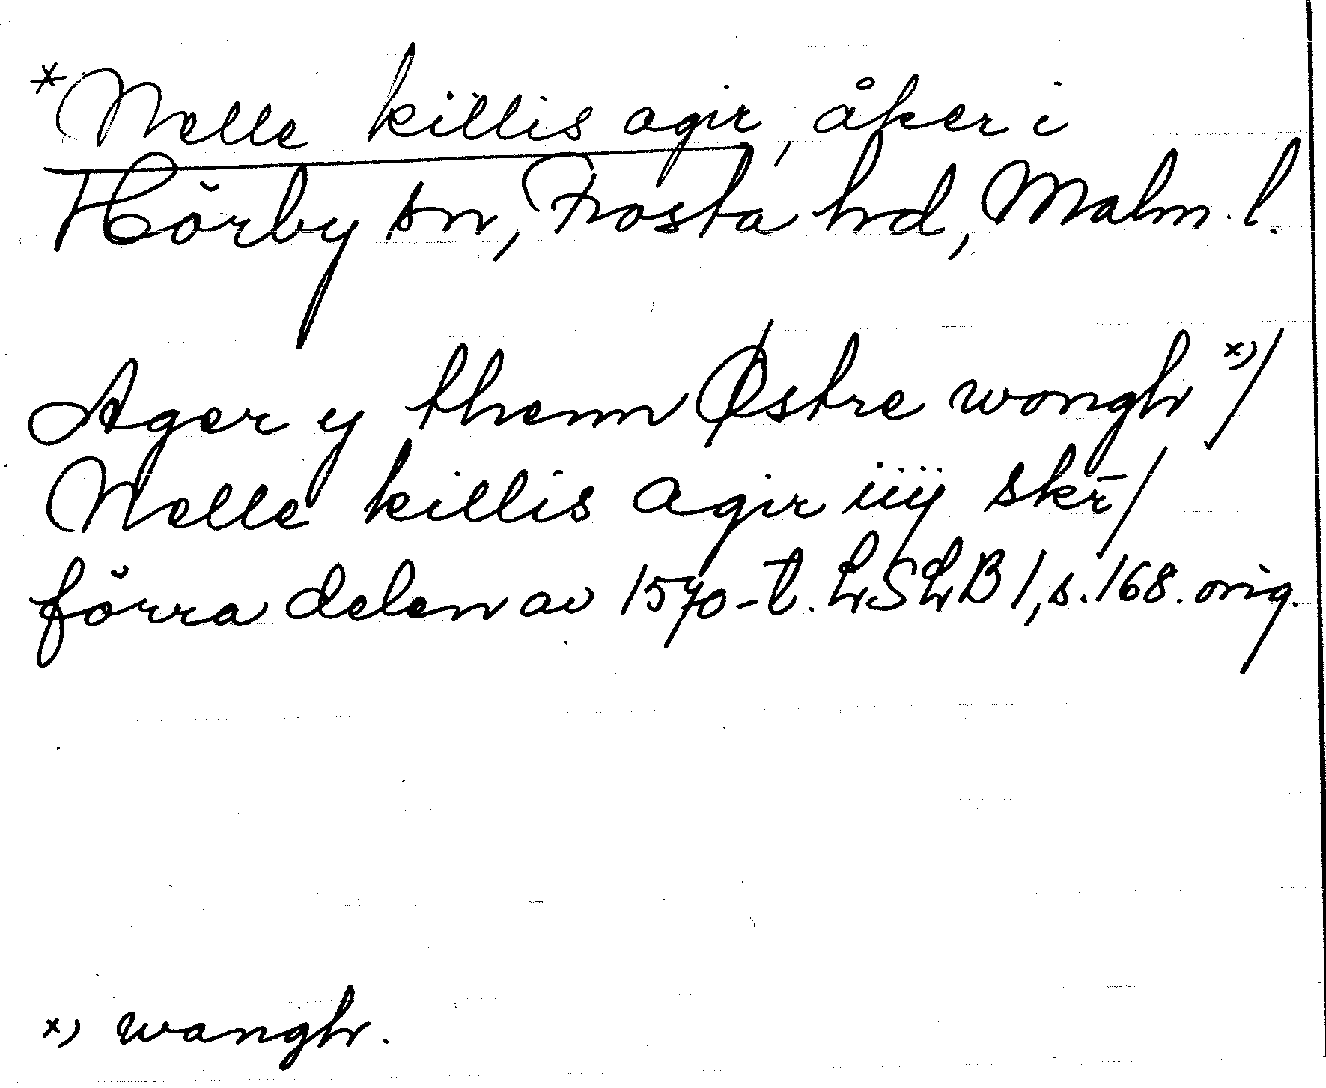 *Nelle killis agir, åker i
Hörby sn, Frosta hd, Malm. l.
Ager y themm Østre wongh x)/
Nelle killis agir iiij skr/
förra delen av 1570-t. LSLB 1, s. 168. orig.
x) wangh.